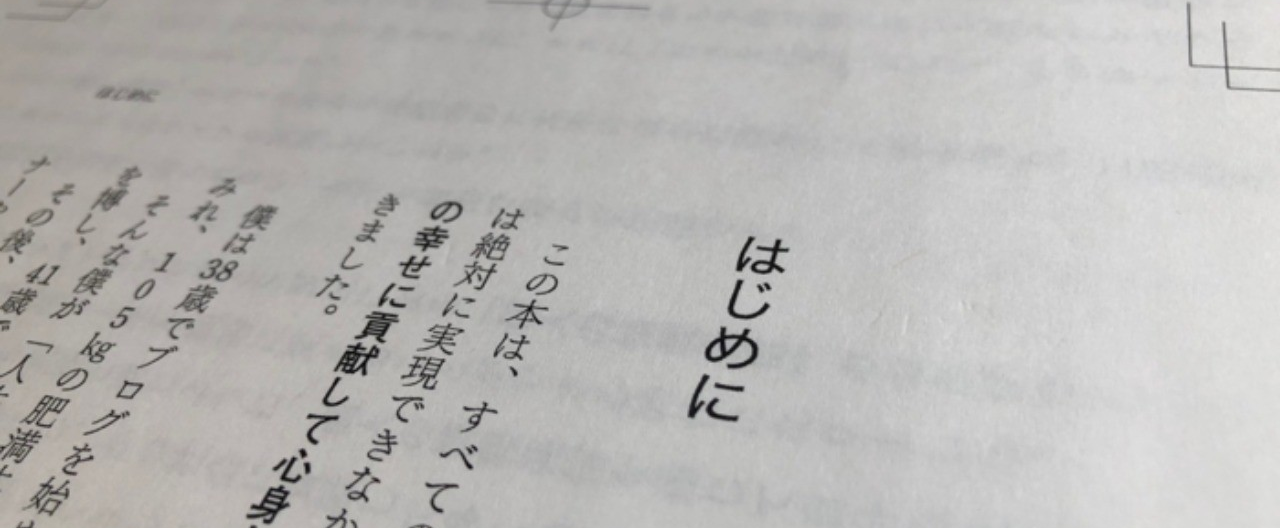 はじめに
この本は、すべての
は絶対に実現できなか
の幸せに貢献して心身
きました。
僕は38歳でブログを始
みれ、
そんな105kgの肥満
を博し、
その後、41歳で「人
はじめに